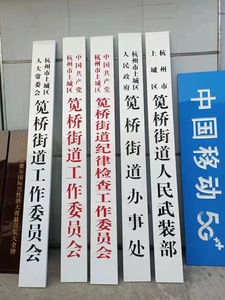 杭州市上城区
人大常委会
笕桥街道工作委员会
中国共产党
杭州市上城区
笕桥街道工作委员会
中国共产党
杭州市上城区
笕桥街道纪律检查工作委员会
杭州市上城区
人民政府
笕桥街道办事处
杭州市
上城区
笕桥街道人民武装部
中国移动
5G